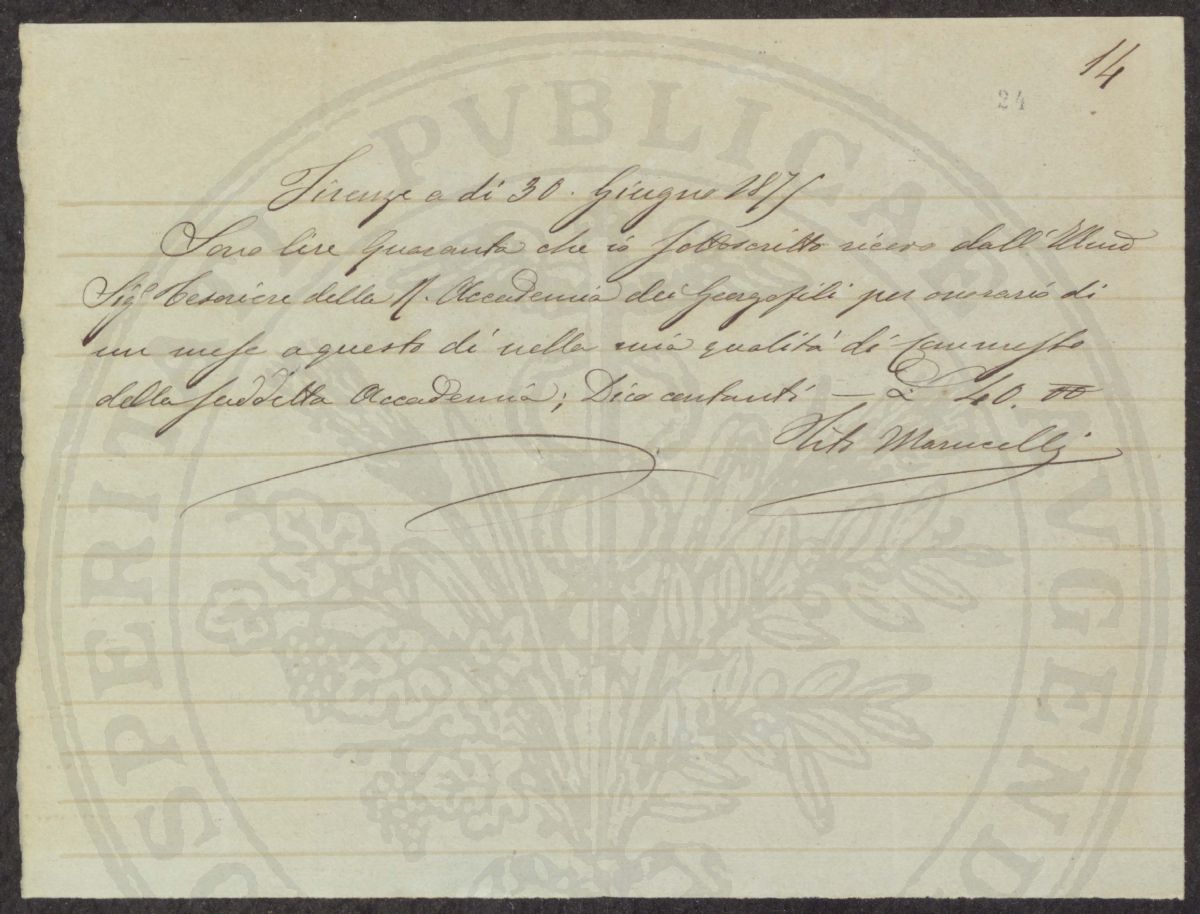 14
24
Firenze a dì 30. Giugno 1875
Sono lire Quaranta che io sottoscritto ricevo dall' Illmo
Sigre Tesoriere della R. Accademia dei Georgofili per onorario di
un mese a questo dì nella mia qualità di Commesso
della suddetta Accademia; Dico contanti — £ 40. 00
Marucelli
PROSPERITATI PVBLICAE AVGENDAE